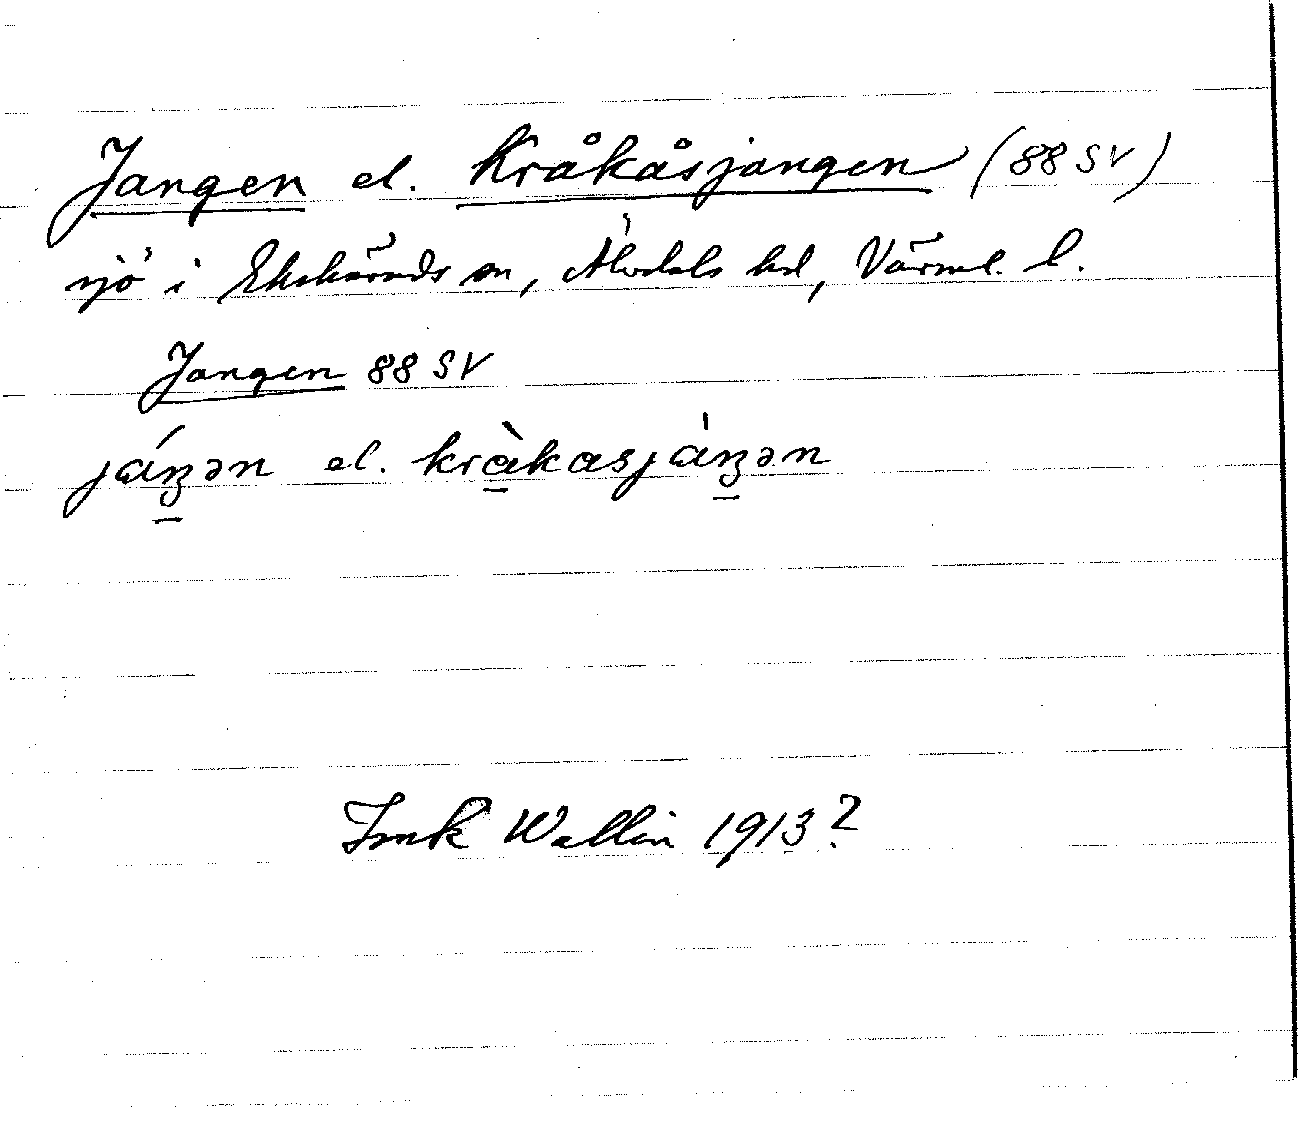 Jangen el. Kråkåsjangen (88 SV)
sjö i Ekshärads sn, Älvdals hd, Värml. l.
Jangen 88 SV
jáꞑən el. kràkasjáꞑən
Wallin 1913?